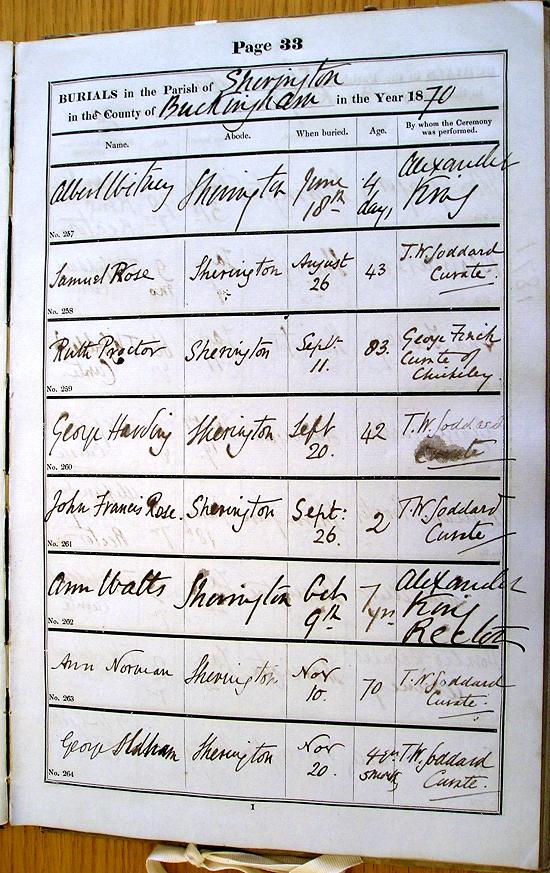 Page 33
BURIALS in the Parish of Sherington
in the County of Buckingham in the Year 1870
Name. Abode. When buried. Age. By whom the Ceremony was performed.
Albert Witney Sherington June 18th 4 days Alexander King
No. 257
Samuel Rose Sherington August 26 43 T.W. Goddard Curate.
No. 258
Ruth Proctor Sherington Sept. 11. 83. George Finch Curate of Chicheley
No. 259
George Harding Sherington Sept 20. 42 T.W. Goddard Curate
No. 260
John Francis Rose. Sherington Sept: 26. 2 T.W. Goddard Curate
No. 261
Ann Watts Sherington Oct 9th 7 yrs Alexander King Rector
No. 262
Ann Norman Sherington Nov 10. 70 T.W. Goddard Curate.
No. 263
George Oldham Sherington Nov 20. T.W. Goddard Curate.
No. 264
I